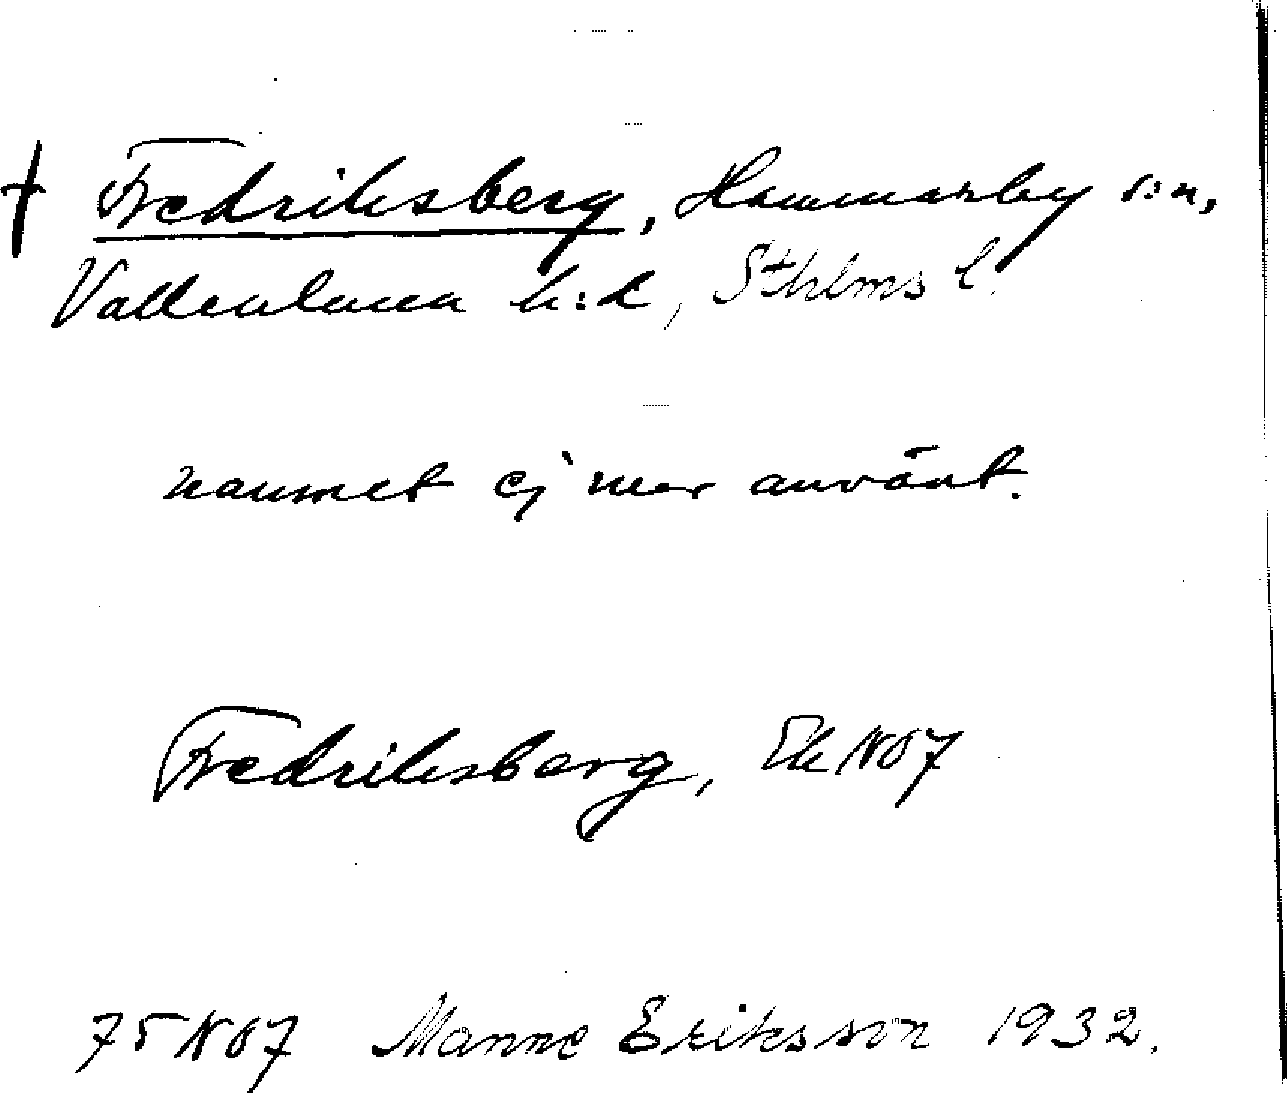 † Fredriksberg, Hammarby s:n,
Vallentuna h:d, Sthlms l.
namnet ej mer använt.
Fredriksberg, Ek NO7
75 NO7 Manne Eriksson 1932.